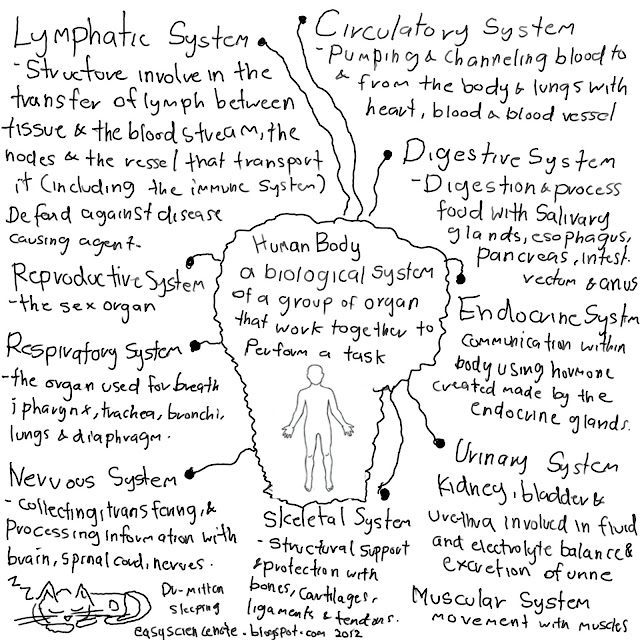 Lymphatic System
-Structure involve in the
transfer of lymph between
tissue & the blood stream, the
nodes & the vessel that transport
it (including the immune system)
Defend against disease
causing agent.
Reproductive System
-the sex organ
Respiratory System
-the organ used for breath
i pharynx, trachea, bronchi,
lungs & diaphragm.
Nervous System
- collecting, transfering, &
processing information with
brain, spinal cord, nerves.
Dr-mitton
sleeping
easysciencenote.blogspot.com 2012
Human Body
a biological system
of a group of organ
that work together to
Perform a task
Circulatory System
-Pumping & channeling blood to
& from the body & lungs with
heart, blood & blood vessel
Digestive System
-Digestion & process
food with Salivary
glands, esophagus,
pancreas, intest.
rectum & anus
Endocrine System
communication within
body using hormone
created made by the
endocrine glands.
Urinary System
Kidney, bladder &
urethra involved in fluid
and electrolyte balance &
excretion of urine
Skeletal System
- structural support
& protection with
bones, cartilages,
ligaments & tendons.
Muscular System
movement with muscles